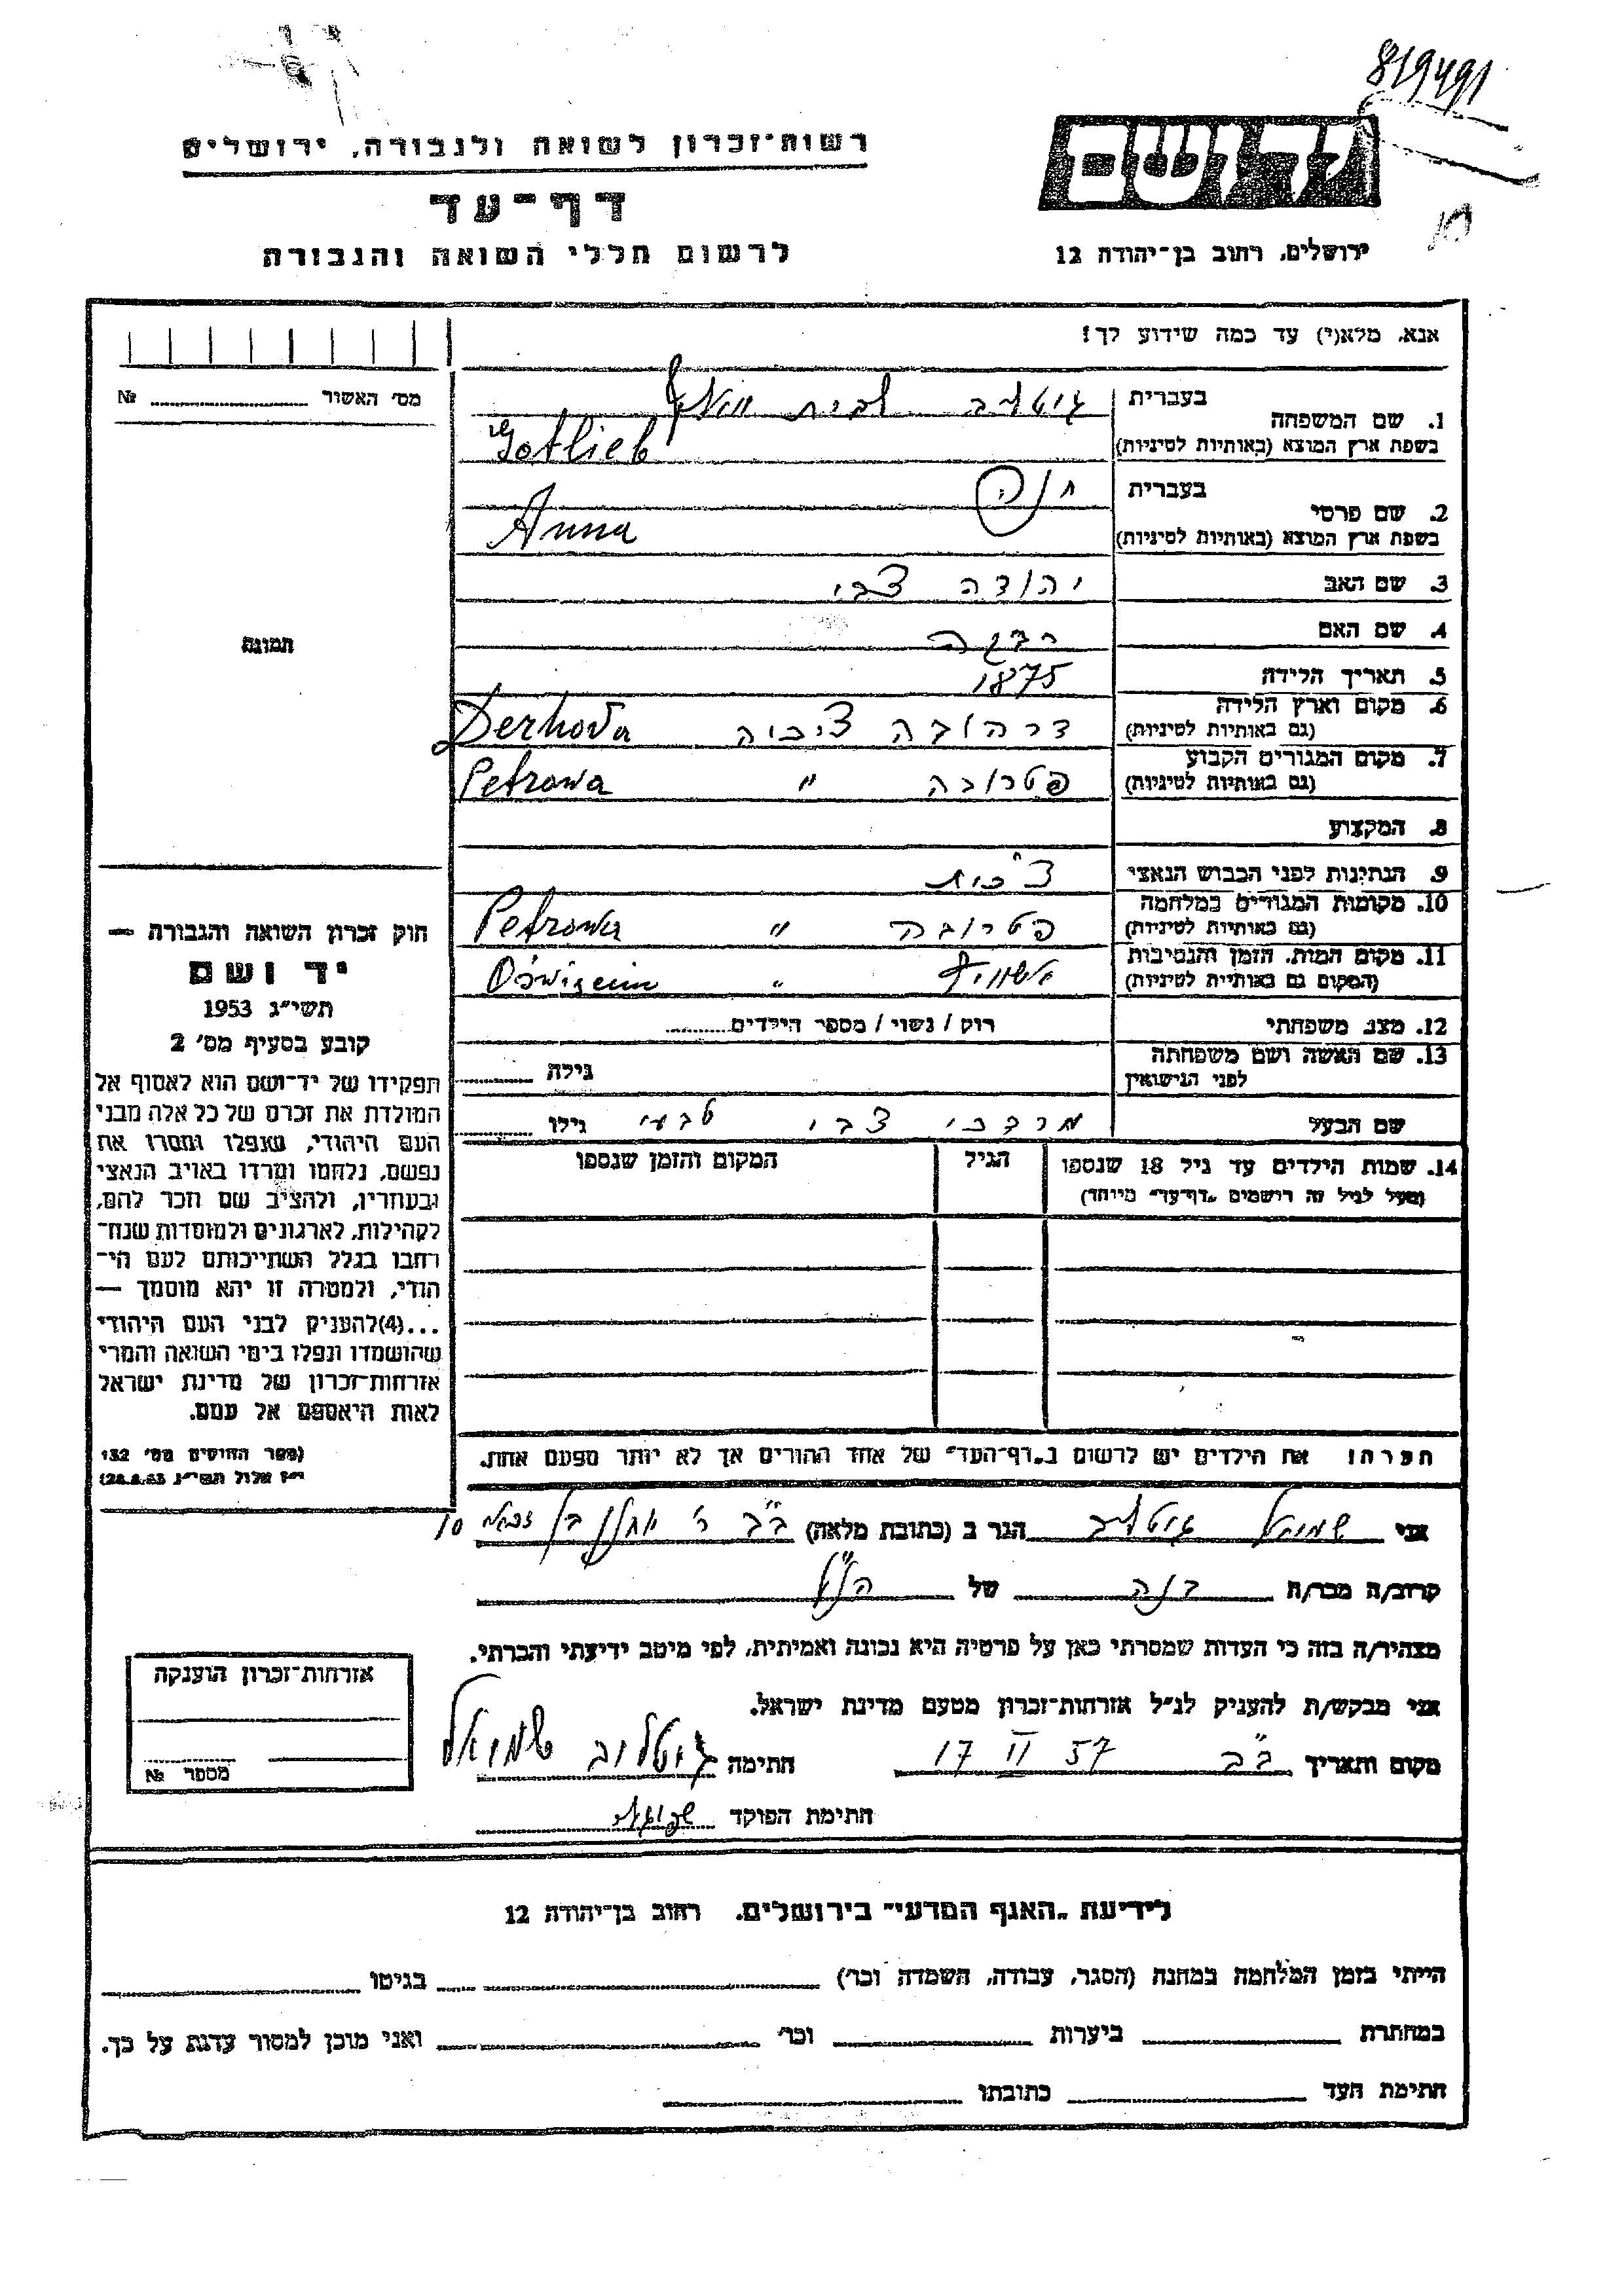 819491
רשות־זכרון לשואה ולגבורה, ירושלים
יד ושם
דף־עד
לרשום חללי השואה והגבורה
ירושלים, רחוב בן־יהודה 12
אנא, מלא(י) עד כמה שידוע לך!
מס׳ האשור № 
1. שם המשפחה
בעברית גוטליב לבית
בשפת ארץ המוצא (באותיות לטיניות) Gotlieb
2. שם פרטי
בעברית חנה
בשפת ארץ המוצא (באותיות לטיניות) Anna
3. שם האב יהודה צבי
4. שם האם רבקה
5. תאריך הלידה 1875
6. מקום וארץ הלידה דרהובה צ׳כיה Derhova
(גם באותיות לטיניות)
7. מקום המגורים הקבוע פטרובה " Petrowa
(גם באותיות לטיניות)
8. המקצוע
9. הנתינות לפני הכבוש הנאצי צ׳כית
10. מקומות המגורים במלחמה פטרובה " Petrowa
(גם באותיות לטיניות)
11. מקום המות, הזמן והנסיבות אושוויץ " Oświęcim
(המקום גם באותיות לטיניות)
12. מצב משפחתי רוק / נשוי / מספר הילדים
13. שם האשה ושם משפחתה
לפני הנישואין גילה
שם הבעל מרדכי צבי טבעי גילו
14. שמות הילדים עד גיל 18 שנספו הגיל המקום והזמן שנספו
(מעל לגיל זה רושמים „דף־עד״ מיוחד)
הערה! את הילדים יש לרשום ב„דף־העד״ של אחד ההורים אך לא יותר מפעם אחת.
תמונה
חוק זכרון השואה והגבורה —
יד ושם
תשי״ג 1953
קובע בסעיף מס׳ 2
תפקידו של יד־ושם הוא לאסוף אל
המולדת את זכרם של כל אלה מבני
העם היהודי, שנפלו ומסרו את
נפשם, נלחמו ומרדו באויב הנאצי
ובעוזריו, ולהציב שם וזכר להם,
לקהילות, לארגונים ולמוסדות שנח־
רבו בגלל השתייכותם לעם הי־
הודי, ולמטרה זו יהא מוסמך —
...(4)להעניק לבני העם היהודי
שהושמדו ונפלו בימי השואה והמרי
אזרחות־זכרון של מדינת ישראל
לאות היאספם אל עמם.
(ספר החוקים מס׳ 132
י״ז אלול תשי״ג 28.8.53)
אני שמואל גוטליב הגר ב (כתובת מלאה) ב״ב ר׳ 10
קרוב/ה מכר/ה בנה של הנ״ל
מצהיר/ה בזה כי העדות שמסרתי כאן על פרטיה היא נכונה ואמיתית, לפי מיטב ידיעתי והכרתי.
אני מבקש/ת להעניק לנ״ל אזרחות־זכרון מטעם מדינת ישראל.
מקום ותאריך ב״ב 17 II 57 חתימה גוטליב שמואל
חתימת הפוקד
אזרחות־זכרון הוענקה
מספר №
לידיעת „האגף המדעי״ בירושלים, רחוב בן־יהודה 12
הייתי בזמן המלחמה במחנה (הסגר, עבודה, השמדה וכו׳) בגיטו
במחתרת ביערות וכו׳ ואני מוכן למסור עדות על כך.
חתימת העד כתובתו